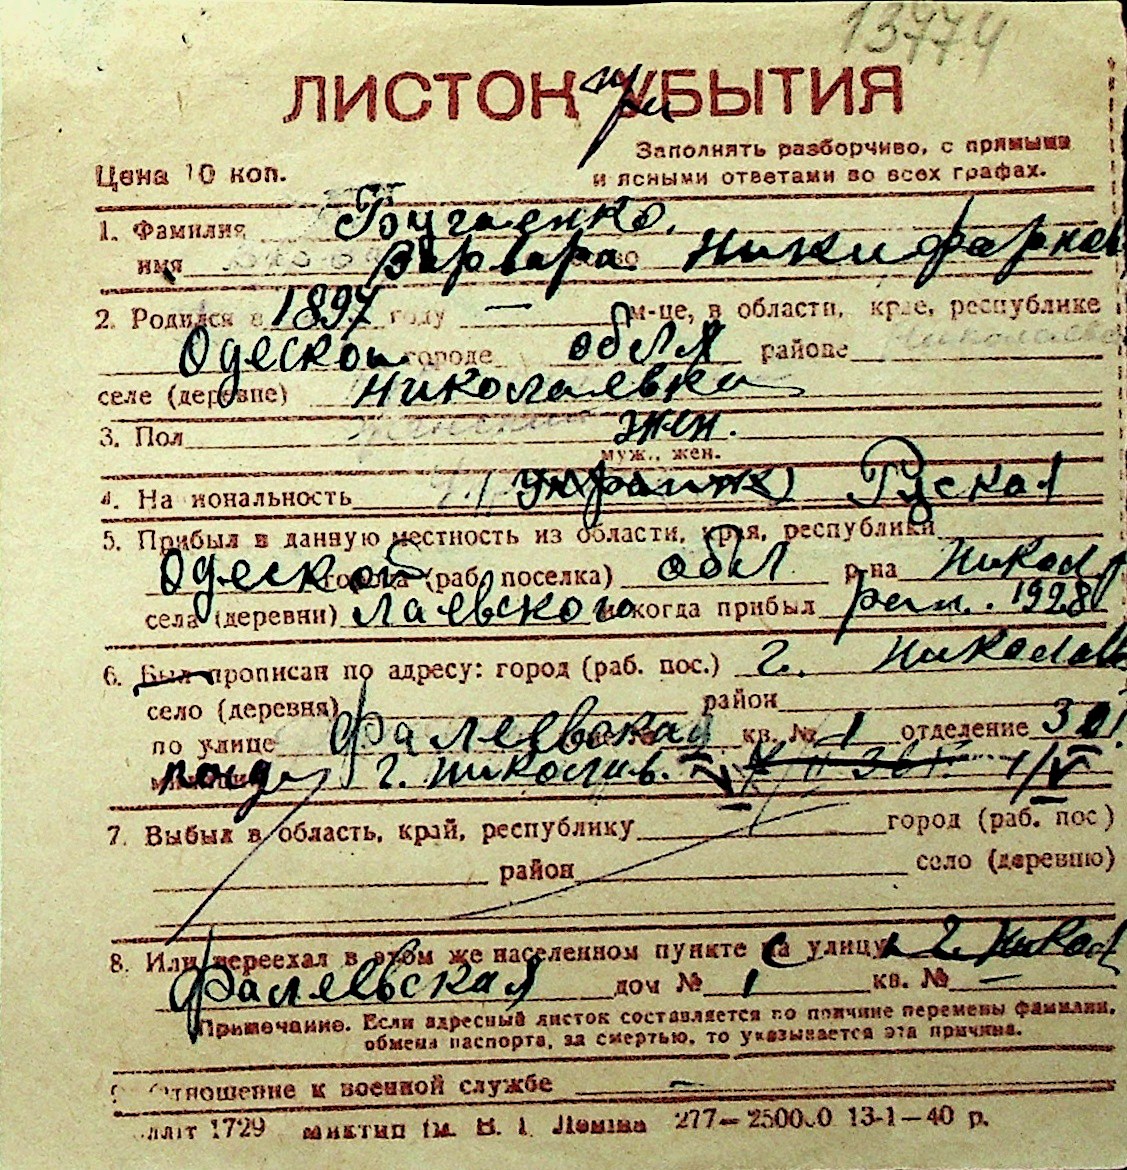 13774
ЛИСТОК УБЫТИЯ
при
Заполнять разборчиво, с прямыми
Цена 10 коп.
и ясными ответами во всех графах.
1. Фамилия Бугаенко.
имя Варвара Никифарнов
2. Родился в 1897 году — м-це, в области, крае, республике
Одеской городе обл районе
селе (деревне) Николаевка
3. Пол жен.
муж., жен.
4. На иональность Руская
5. Прибыл в данную местность из области, края, республики
Одеской города (раб поселка) обл р-на Никол
села (деревни) лаевского и когда прибыл 1928
6. Был прописан по адресу: город (раб. пос.) г. Николаев
село (деревня) район
по улице Фалеевская кв. № 1 отделение
г. Николаев.
7. Выбыл в область, край, республику город (раб. пос)
район село (деревню)
8. Или переехал в этом же населенном пункте на улицу с г. Никол
Фалеевская дом № 1 кв. № —
Примечание. Если адресный листок составляется по причине перемены фамилии,
обмена паспорта, за смертью, то указывается эта причина.
9 Отношение к военной службе —
1729 277—25000 13-1—40 р.